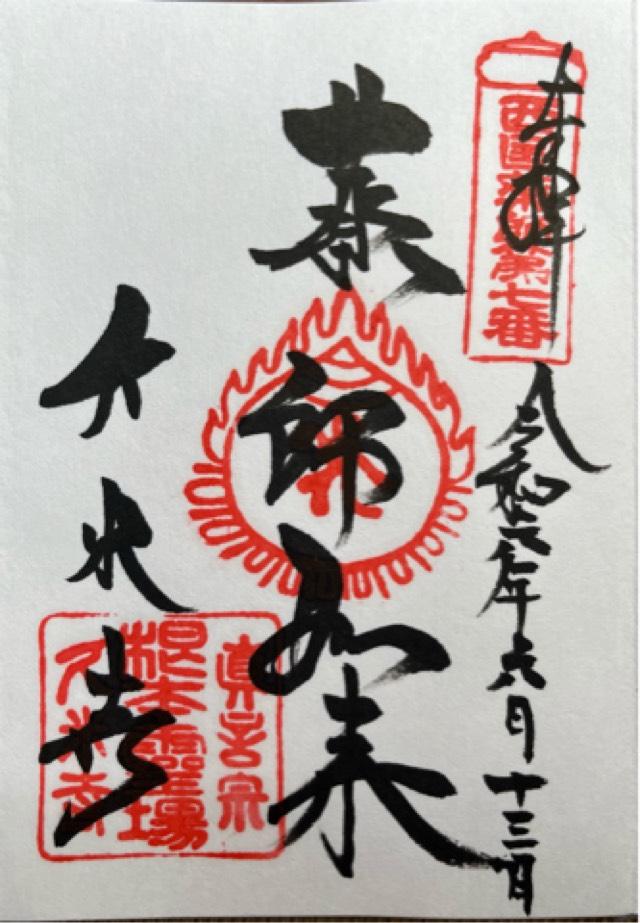 奉拝
西国薬師第七番
令和六年六月十三日
薬師如来
久米寺
真言宗
根本霊場
久米寺